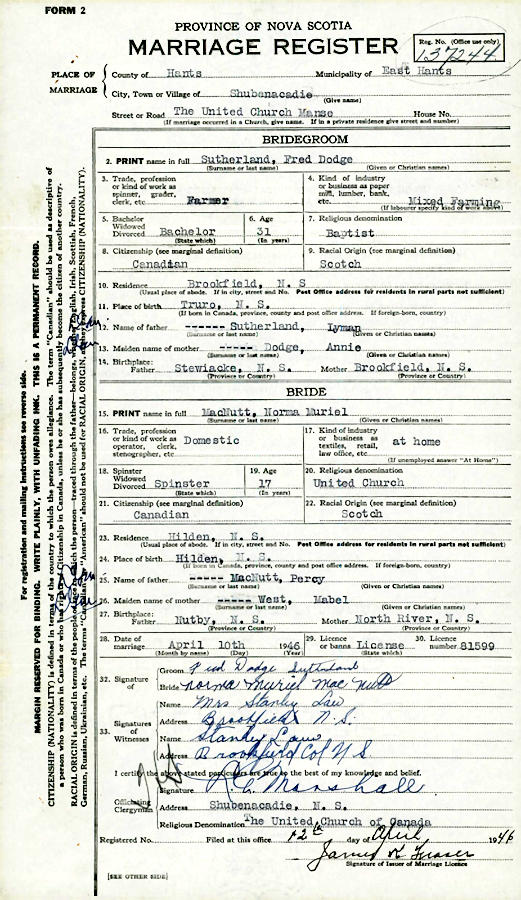 FORM 2
PROVINCE OF NOVA SCOTIA
MARRIAGE REGISTER
Reg. No. (Office use only)
137244
PLACE OF MARRIAGE
County of Hants Municipality of East Hants
City, Town or Village of Shubenacadie
(Give name)
Street or Road The United Church Manse House No.
(If marriage occurred in a Church, give name. If in a private residence give street and number)
BRIDEGROOM
2. PRINT name in full Sutherland, Fred Dodge
(Surname or last name) (Given or Christian names)
3. Trade, profession or kind of work as spinner, grader, clerk, etc. Farmer
4. Kind of industry or business as paper mill, lumber, bank, etc. Mixed Farming
(If labourer specify kind of work above)
5. Bachelor Widowed Divorced Bachelor
(State which)
6. Age 31
(In years)
7. Religious denomination
Baptist
8. Citizenship (see marginal definition)
Canadian
9. Racial Origin (see marginal definition)
Scotch
10. Residence Brookfield, N. S
(Usual place of abode. If in city, street and No. Post Office address for residents in rural parts not sufficient)
11. Place of birth Truro, N. S
(If born in Canada, province, county and post office address. If foreign-born, country)
12. Name of father ------ Sutherland, Lyman
(Surname or last name) (Given or Christian names)
13. Maiden name of mother ----- Dodge, Annie
(Surname or last name) (Given or Christian names)
14. Birthplace: Father Stewiacke, N. S. Mother Brookfield, N. S.
(Province or Country) (Province or Country)
BRIDE
15. PRINT name in full MacNutt, Norma Muriel
(Surname or last name) (Given or Christian names)
16. Trade, profession or kind of work as operator, clerk, stenographer, etc Domestic
17. Kind of industry or business as textiles, retail, law office, etc. at home
(If unemployed answer "At Home")
18. Spinster Widowed Divorced Spinster
(State which)
19. Age 17
(In years)
20. Religious denomination
United Church
21. Citizenship (see marginal definition)
Canadian
22. Racial Origin (see marginal definition)
Scotch
23. Residence Hilden, N. S.
(Usual place of abode. If in city, street and No. Post Office address for residents in rural parts not sufficient)
24. Place of birth Hilden, N. S.
(If born in Canada, province, county and post office address. If foreign-born, country)
25. Name of father ----- MacNutt, Percy
(Surname or last name) (Given or Christian names)
26. Maiden name of mother ----- West, Mabel
(Surname or last name) (Given or Christian names)
27. Birthplace: Father Nutby, N. S. Mother North River, N. S.
(Province or Country) (Province or Country)
28. Date of marriage April 10th 1946
(Month by name) (Day) (Year)
29. Licence or banns License
(State which)
30. Licence number 81599
32. Signature of
Groom Fred Dodge Sutherland
Bride Norma Muriel Mac Nutt
33. Signatures of Witnesses
Name Mrs Stanley Law
Address Brookfield N.S.
Name Stanley Law
Address Brookfield Col N S
I certify the above stated particulars are true to the best of my knowledge and belief.
Officiating Clergyman
Signature Marshall
Address Shubenacadie, N. S.
Religious Denomination The United Church of Canada
Registered No. Filed at this office 12th day of April 1946
James Fraser
Signature of Issuer of Marriage Licence
[SEE OTHER SIDE]
For registration and mailing instructions see reverse side.
MARGIN RESERVED FOR BINDING. WRITE PLAINLY, WITH UNFADING INK. THIS IS A PERMANENT RECORD.
CITIZENSHIP (NATIONALITY) is defined in terms of the country to which the person owes allegiance. The term "Canadian" should be used as descriptive of
a person who was born in Canada or who has rights of Citizenship in Canada, unless he or she has subsequently become the citizen of another country.
RACIAL ORIGIN is defined in terms of the people to which the person—traced through the father—belongs, English, Irish, Scottish, French,
German, Russian, Ukrainian, etc. The terms "Canadian" "American" should not be used for RACIAL ORIGIN, express CITIZENSHIP (NATIONALITY).